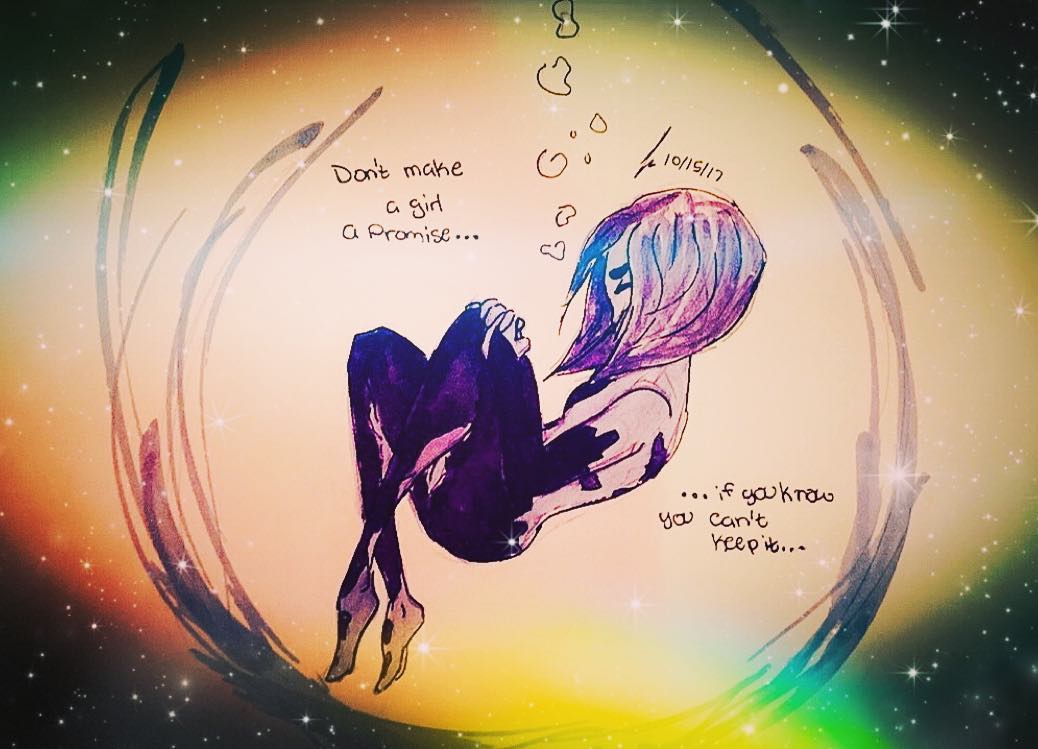 Don't make
a girl
a Promise...
10/15/17
...if you know
you can't
keep it...